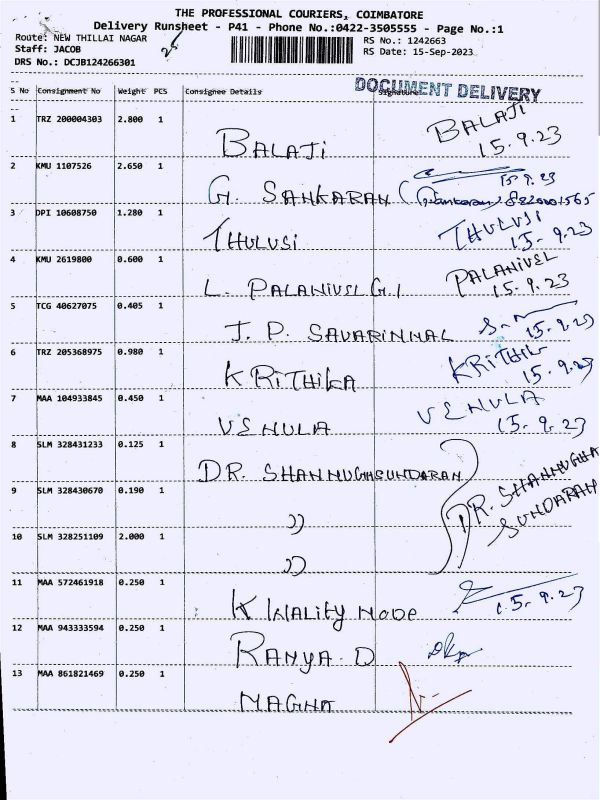 THE PROFESSIONAL COURIERS, COIMBATORE
Delivery Runsheet - P41 - Phone No.:0422-3505555 - Page No.:1
Route: NEW THILLAI NAGAR
RS No.: 1242663
Staff: JACOB
RS Date: 15-Sep-2023
DRS No.: DCJB124266301
DOCUMENT DELIVERY
S No Consignment No Weight PCS Consignee Details Signature
1 TRZ 200004303 2.800 1 BALAJI BALAJI
15.9.23
2 KMU 1107526 2.650 1 G. SANKARAN
15.9.23
3 DPI 10608750 1.280 1 THULUSI THULUSI
15.9.23
4 KMU 2619800 0.600 1 L. PALANIVEL G.1 PALANIVEL
15.9.23
5 TCG 40627075 0.405 1 J. P. SAVARINMAL
15.9.23
6 TRZ 205368975 0.980 1 KRITHIKA KRITHIK
15.9.23
7 MAA 104933845 0.450 1 VENULA VENULA
15.9.23
8 SLM 328431233 0.125 1 DR. SHANNUGHASUNDARAN DR. SHANNUGHA
SUNDARAN
9 SLM 328430670 0.190 1 ))
10 SLM 328251109 2.000 1 ))
11 MAA 572461918 0.250 1 K WALITY NODE
15.9.23
12 MAA 943333594 0.250 1 RANYA. D
13 MAA 861821469 0.250 1 MAGNA